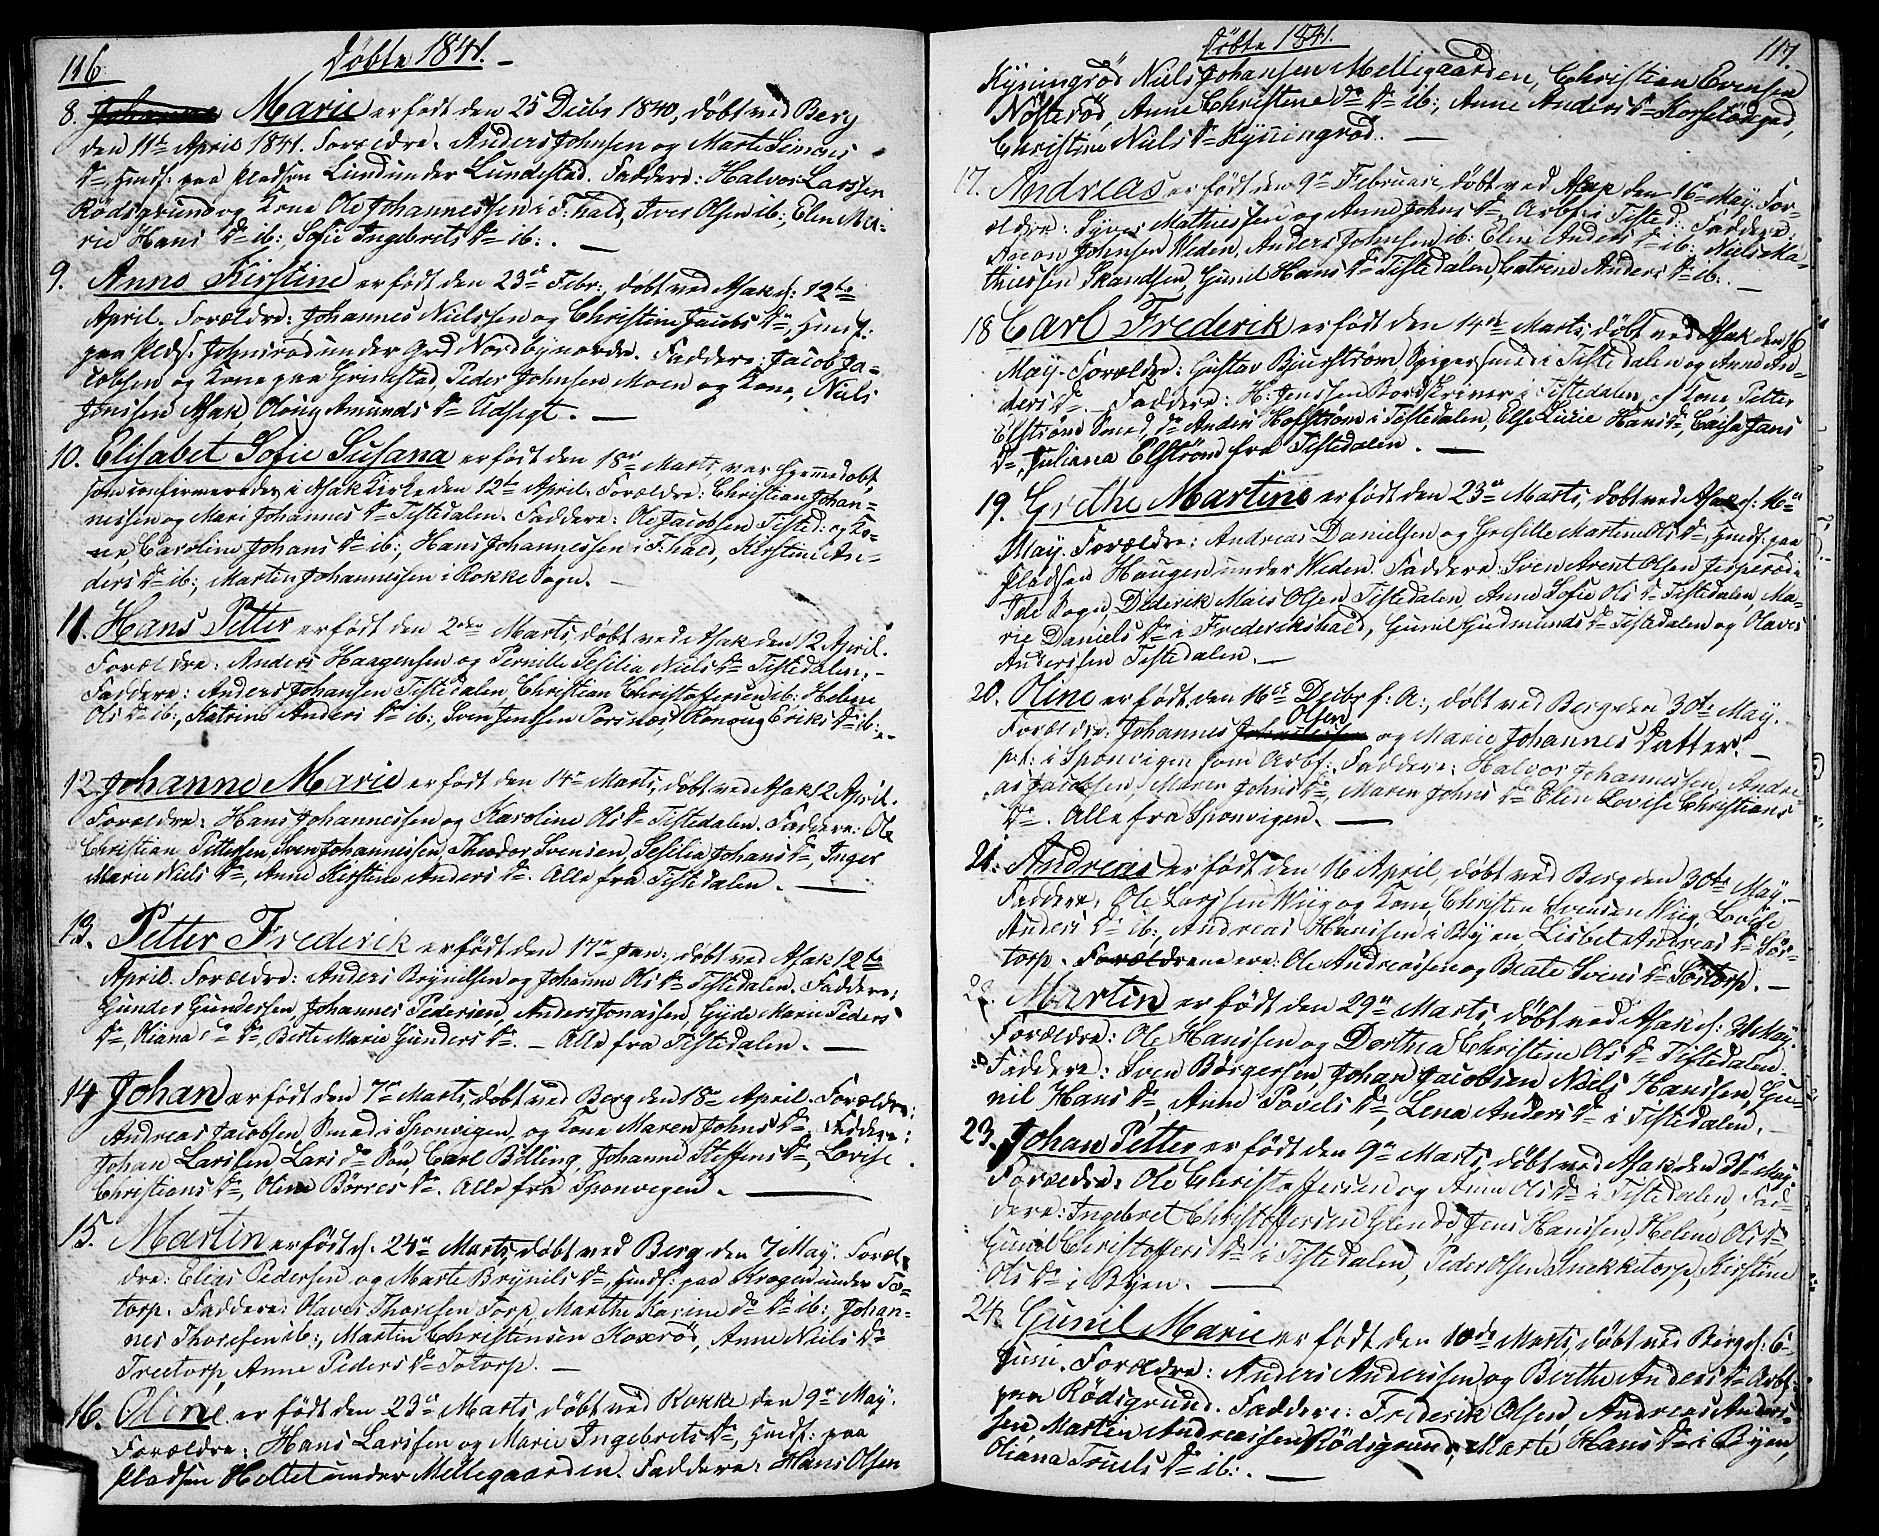 116
Døbte 1841.
8. Johanne Marie er født den 25 Decbr 1840, døbt ved Berg
den 11te April 1841. Forældre: Anders Johnsen og Marte Simens
Dr, Huusf: paa Pladsen Lund under Lundestad. Faddere: Halvor Larssen
Rödsgrund og Kone Ole Johannessen i F:hald, Iver Olsen ib:, Elen Ma-
rie Hans Dr ib:, Sofie Ingebrets Dr ib:. —
9. Anne Kirstine er født den 23de Febr:, døbt ved Asak d: 12te
April. Forældre: Johannes Nielssen og Christine Jacobs Dr, Huusf:
paa Plds: Johnsrød under Grd Nordbynordre. Faddere: Jacob Ja-
cobsen og Kone paa Grimestad, Peder Johnsen Moen og Kone, Niels
Jenssen Asak, Oloug Amunds Dr Udsigt. —
10. Elisabet Sofie Susana er født den 18de Marts, var hjemmedøbt,
som confirmeredes i Asak Kirke den 12te April. Forældre: Christian Johan-
nessen og Mari Johannes Dr Tistedalen. Faddere: Ole Jacobsen Tisted: og Ko-
ne, Caroline Johans Dr ib:, Hans Johannessen i F:hald, Kirstine An-
ders Dr ib:, Martin Johannessen i Rokke Sogn. —
11. Hans Petter er født den 2den Marts, døbt ved Asak den 12 April.
Forældre: Anders Haagensen og Pernille Sesilia Niels Dr Tistedalen. —
Faddere: Anders Johansen Tistedalen, Christian Christofersen ib: Helene
Ols Dr ib:, Katrine Anders Dr ib:, Sven Jensen Porsnæs, Rönoug Eriks Dr ib:. —
12. Johanne Marie er født den 14de Marts, døbt ved Asak 12 April.
Forældre: Hans Johannessen og Karoline Ols Dr Tistedalen. Faddere: Ole
Christian Pettersen, Sven Johannessen, Theodor Svensen, Sesilia Johans Dr, Inger
Marie Niels Dr, Anne Kirstine Anders Dr. Alle fra Tistedalen. —
13. Petter Frederik er født den 17de Jan:, døbt ved Asak 12te
April. Forældre: Anders Brynilsen og Johanne Ols Dr Tistedalen. Faddere:
Gunder Gundersen, Johannes Pedersen, Anders Jonassen, Gyde Marie Peders
Dr, Oliana do Dr, Berte Marie Gunders Dr. — Alle fra Tistedalen. —
14. Johan er født den 7de Marts, døbt ved Berg den 18de April. Forældre:
Andreas Jacobsen Smed i Sponvigen, og Kone Maren Johns Dr. Faddere:
Johan Larssen, Lars do Søn, Carl Billing, Johanne Steffens Dr, Lovise
Christians Dr, Oline Börres Dr. Alle fra Sponvigen. —
15. Martin er født d: 24de Marts, døbt ved Berg den 7 May. Foræl-
dre: Elias Pedersen og Marte Brynils Dr, Huusf: paa Krogen under To-
torp. Faddere: Olaves Thoresen Torp, Marthe Karine do Dr ib: Johan-
nes Thoresen ib:, Martin Christensen Koxrød, Anne Niels Dr
Treetorp, Anne Peders Dr Totorp. —
16. Oline er født den 23de Marts, døbt ved Rokke den 9de May.
Forældre: Hans Larssen og Marie Ingebrets Dr, Huusf: paa
Pladsen Holtet under Mellegaarden. Faddere: Hans Olsen
117.
Døbte 1841.
Kyningrød Niels Johansen Mellegaarden, Christian Evensen
Nösterød, Anne Christine do Dr ib:, Anne Anders Dr
Christine Niels Dr Kyningrød. —
17. Andreas er født den 9de Februari, døbt ved Asak den 16de May. For-
ældre: Syver Mathiessen og Anne Johns Dr, Arbf: i Tisted: Faddere:
Aaron Johnsen Weden, Anders Johnsen ib: Elen Anders Dr ib: Niels Ma-
thiessen Skandsen, Gunil Hans Dr Tistedalen, Catrine Anders Dr ib:. —
18 Carl Frederik er født den 14de Marts, døbt ved Asak den 16
May. Forældre: Gustav Bjurström, Spigersmed i Tistedalen og Anne An-
ders Dr. Faddere: H: Jenssen Bordskriver i Tistedalen, og Kone, Petter
Elström Smed, do Anders Hofström i Tistedalen, Else Lucie Hans Dr, Caisa Jans
Dr, Juliana Elström fra Tistedalen. —
19. Grethe Martine er født den 23de Marts, døbt ved Asak d: 16de
May. Forældre: Andreas Danielsen og Martine Ols Dr, Huusf: paa
Pladsen Haugen under Weden. Faddere: Sven Arent Olsen Jesperød i
Ide Sogn, Diderik Mais Olsen Tistedalen, Anne Sofie Ols Dr Tistedalen, Ma-
rie Daniels Dr i Frederikshald, Gunil Gudmunds Dr Tistedalen og Olaves
Anderssen Tistedalen. —
20. Oline er født den 16de Decbr f: A:, døbt ved Berg den 30te May.
Forældre: Johannes Johannessen Olsen og Marie Johannes Datter. —
p.t: i Sponvigen som Arbf:. Faddere: Halvor Johannessen, Andre-
as Jacobsen, Maren Johns Dr, Maren Johns Dr Elen Lovise Christians
Dr. Alle fra Sponvigen. —
21. Andreas er født den 16 April, døbt ved Berg den 30te May. —
Faddere: Ole Larssen Wiig og Kone, Christen Svensen Wiig, Lovise
Anders Dr ib:, Andreas Hanssen i Byen, Lisbet Andreas Dr Sör-
torp. Forældrene ere: Ole Andreassen og Beate Svens Dr Sörtorp. —
22. Martin er født den 29de Marts, døbt ved Asak d: 31 May.
Forældre: Ole Hanssen og Dorthea Christine Ols Dr Tistedalen.
Faddere: Sven Börgersen, Johan Jacobsen, Niels Hanssen, Gu-
nil Hans Dr, Anne Povels Dr, Lena Anders Dr i Tistedalen.
23. Johan Petter er født den 9de Marts, døbt ved Asak den 31te May.
Forældre: Ole Christoffersen og Anne Ols Dr i Tistedalen, Fad-
dere: Ingebret Christoffersen Glende, Jens Hanssen, Helene Ols Dr,
Gunil Christoffers Dr i Tistedalen, Peder Olsen Snekketorp, Kirstine
Ols Dr i Byen. —
24. Gunil Marie er født den 10de Marts, døbt ved Berg d: 6
Juni. Forældre: Anders Anderssen og Berthe Anders Dr Arbf:
paa Rödsgrund. Faddere: Frederik Olsen, Andreas Anders-
sen, Martin Andreassen Rödsgrund, Marte Hans Dr i Byen,
Oliana Truels Dr ib:. —